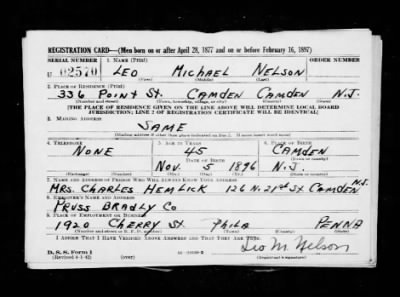 REGISTRATION CARD—(Men born on or after April 28, 1877 and on or before February 16, 1897)
SERIAL NUMBER 1. NAME (Print) ORDER NUMBER
U 02570 LEO MICHAEL NELSON
(First) (Middle) (Last)
2. PLACE OF RESIDENCE (Print)
336 POINT ST. CAMDEN CAMDEN N.J.
(Number and street) (Town, township, village, or city) (County) (State)
[THE PLACE OF RESIDENCE GIVEN ON THE LINE ABOVE WILL DETERMINE LOCAL BOARD
JURISDICTION; LINE 2 OF REGISTRATION CERTIFICATE WILL BE IDENTICAL]
3. MAILING ADDRESS
SAME
[Mailing address if other than place indicated on line 2. If same insert word same]
4. TELEPHONE 5. AGE IN YEARS 6. PLACE OF BIRTH
NONE 45 CAMDEN
DATE OF BIRTH (Town or county)
NOV. 5 1896 N.J.
(Mo.) (Day) (Yr.) (State or country)
7. NAME AND ADDRESS OF PERSON WHO WILL ALWAYS KNOW YOUR ADDRESS
MRS. CHARLES HEMLICK 126 N. 21st ST. CAMDEN N.J.
8. EMPLOYER'S NAME AND ADDRESS
BRADLY CO
9. PLACE OF EMPLOYMENT OR BUSINESS
1920 CHERRY ST. PHILA PENNA
(Number and street or R. F. D. number) (Town) (County) (State)
I AFFIRM THAT I HAVE VERIFIED ABOVE ANSWERS AND THAT THEY ARE TRUE.
D. S. S. Form 1
(Revised 4-1-42) (over) Leo M. Nelson
(Registrant's signature)